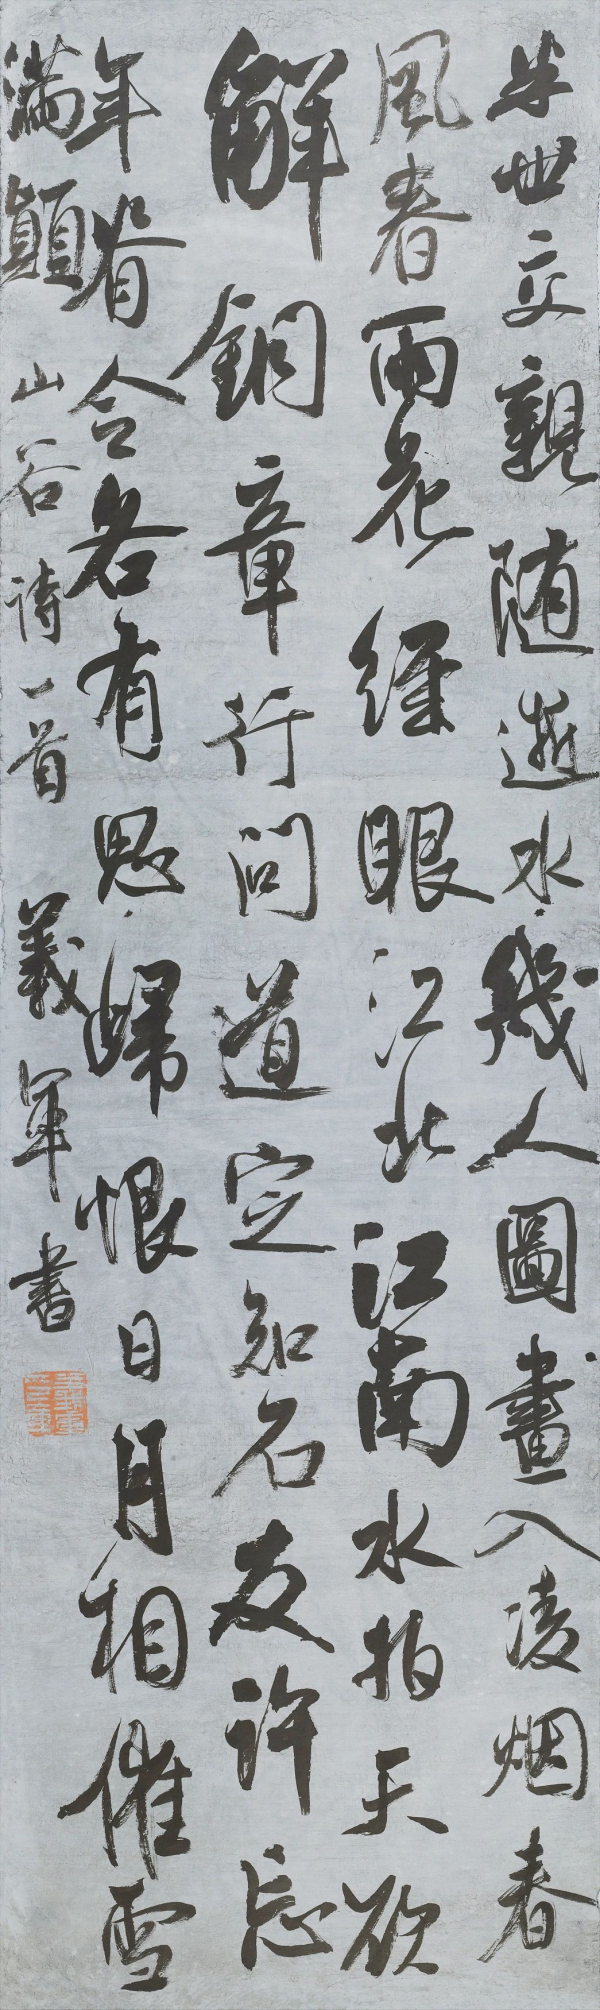 半世交親随逝水幾人圖畫入凌烟春
風春雨花經眼江北江南水拍天欲
解銅章行問道定知石友許忘
年脊令各有思歸恨日月相催雪
滿顛 山谷詩一首 義軍書